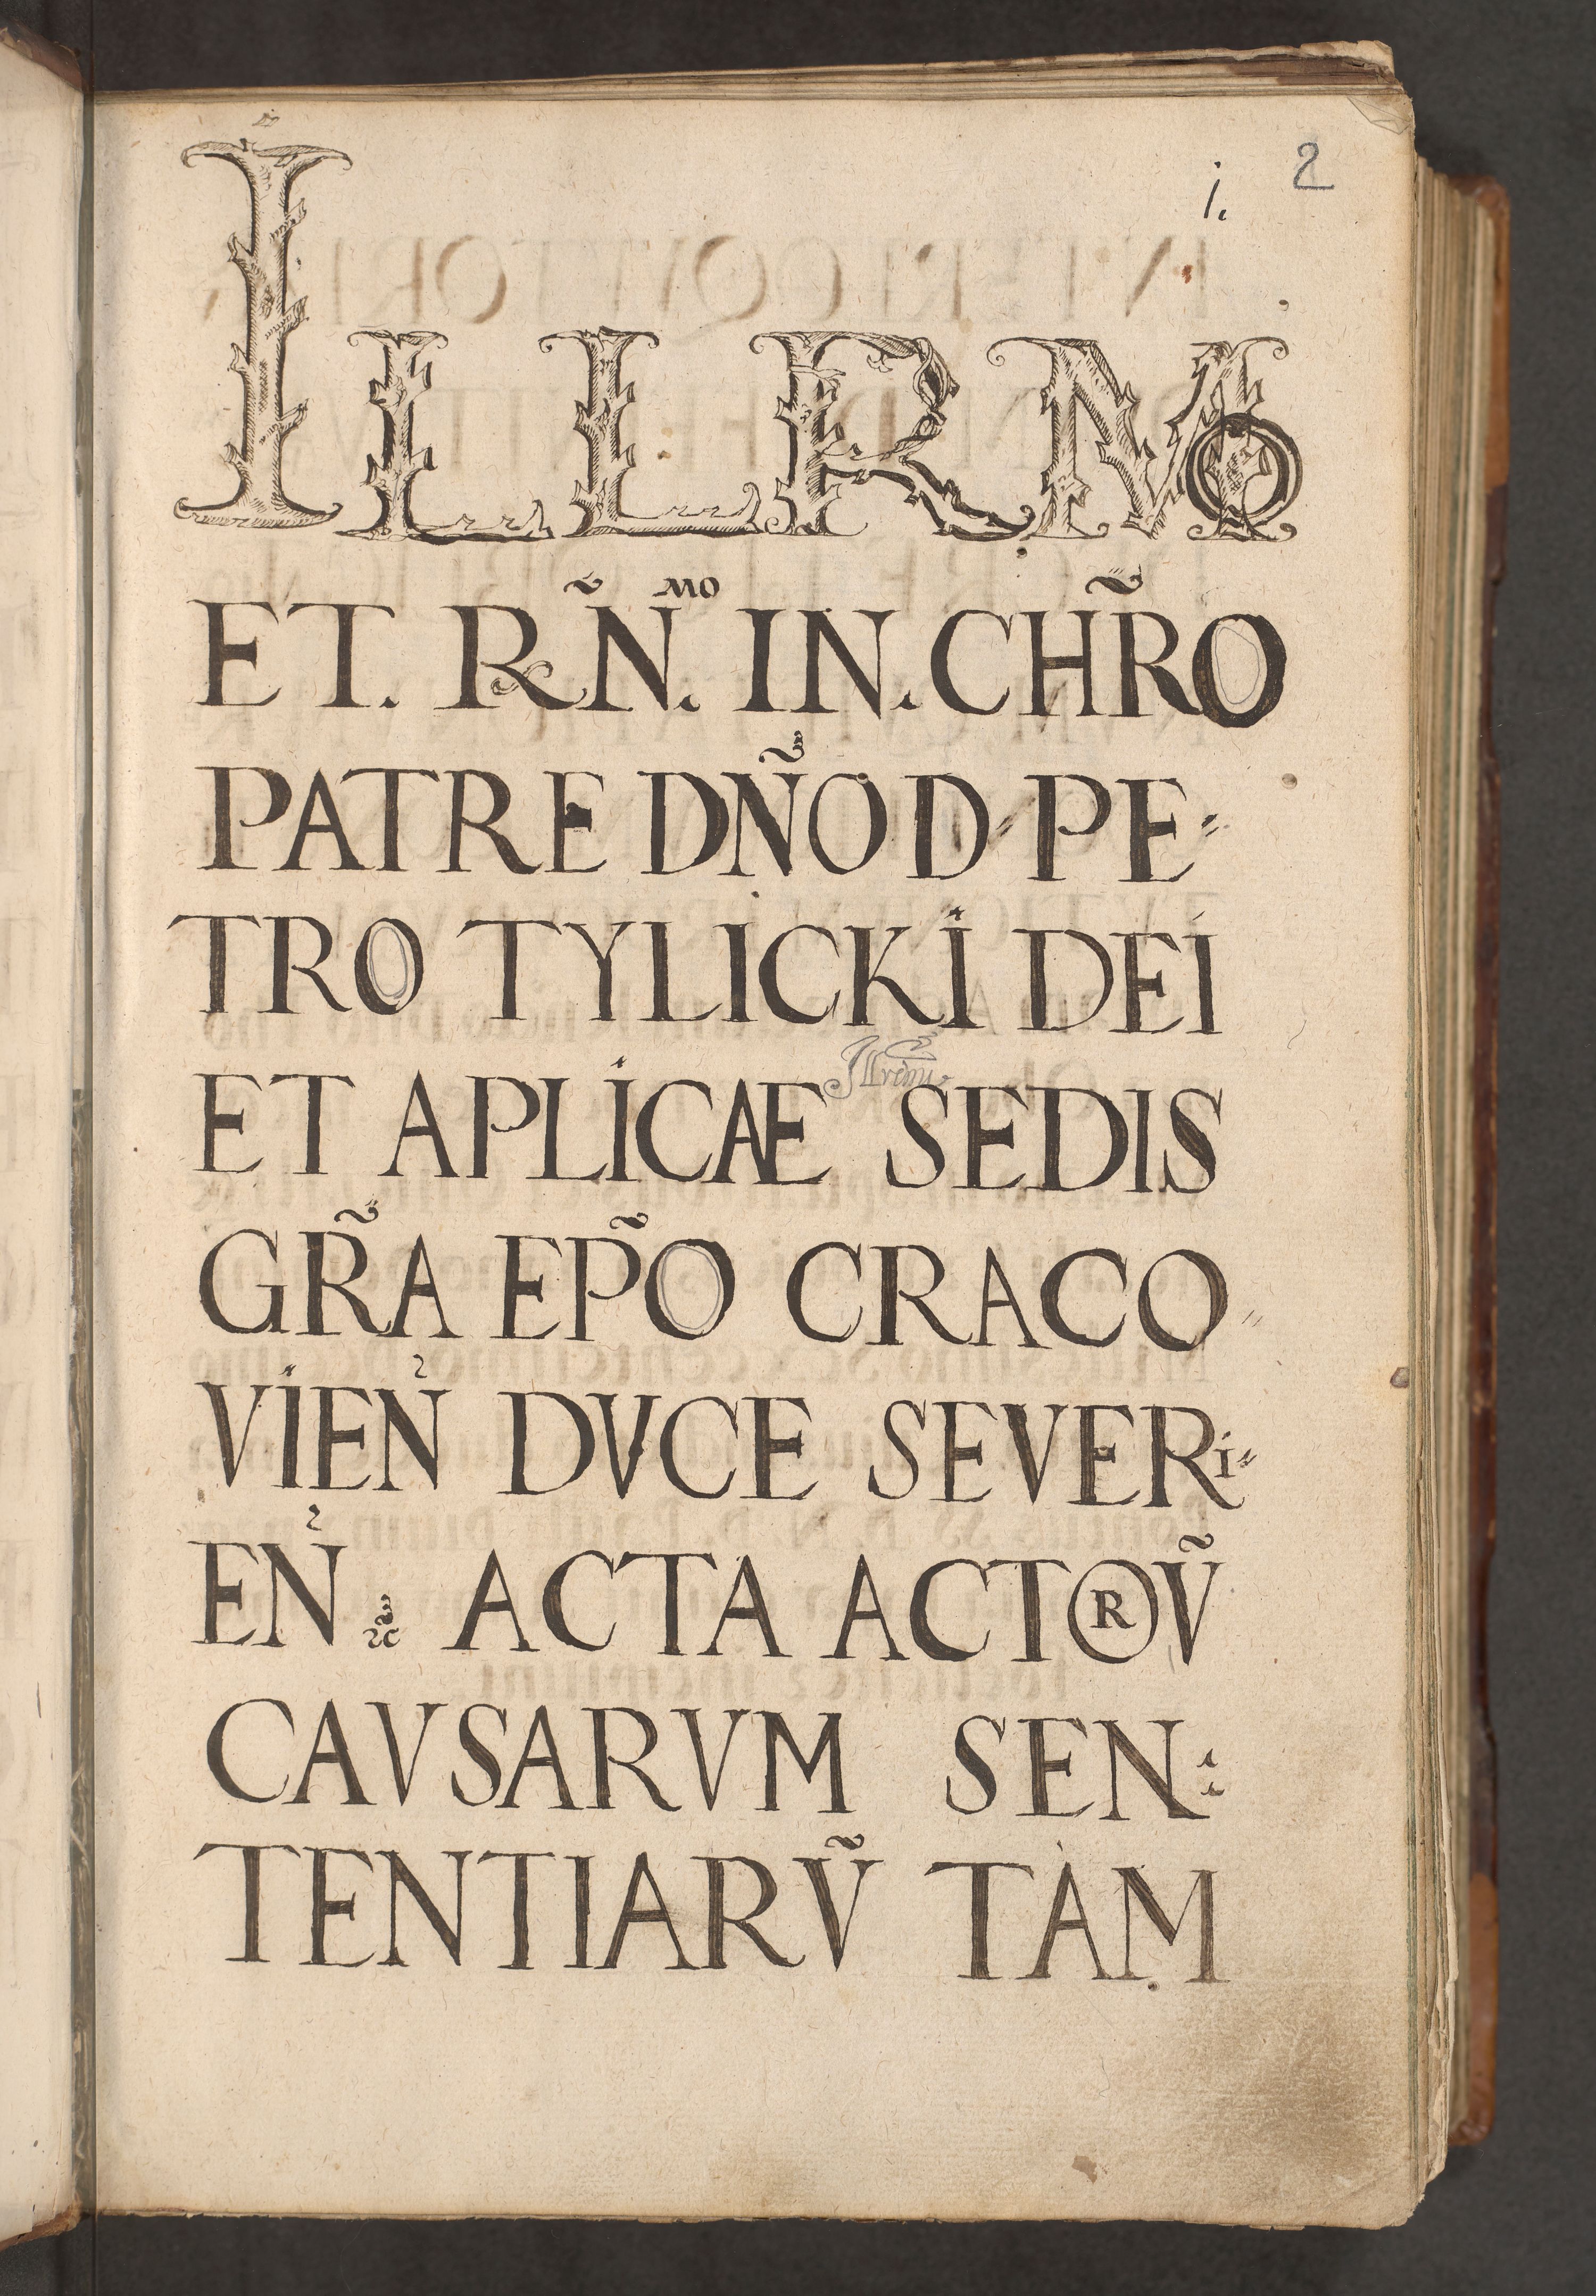 i. 2
ILLRMO
ET. RÑ. MO IN. CHR̃O
PATRE DÑO D PE-
TRO TYLICKI DEI
ET APLICÆ SEDIS
GR̃A EPÕ CRACO-
VIEN DVCE SEVERI-
EN ACTA ACTORṼ
CAVSARVM SEN:
TENTIARṼ TAM